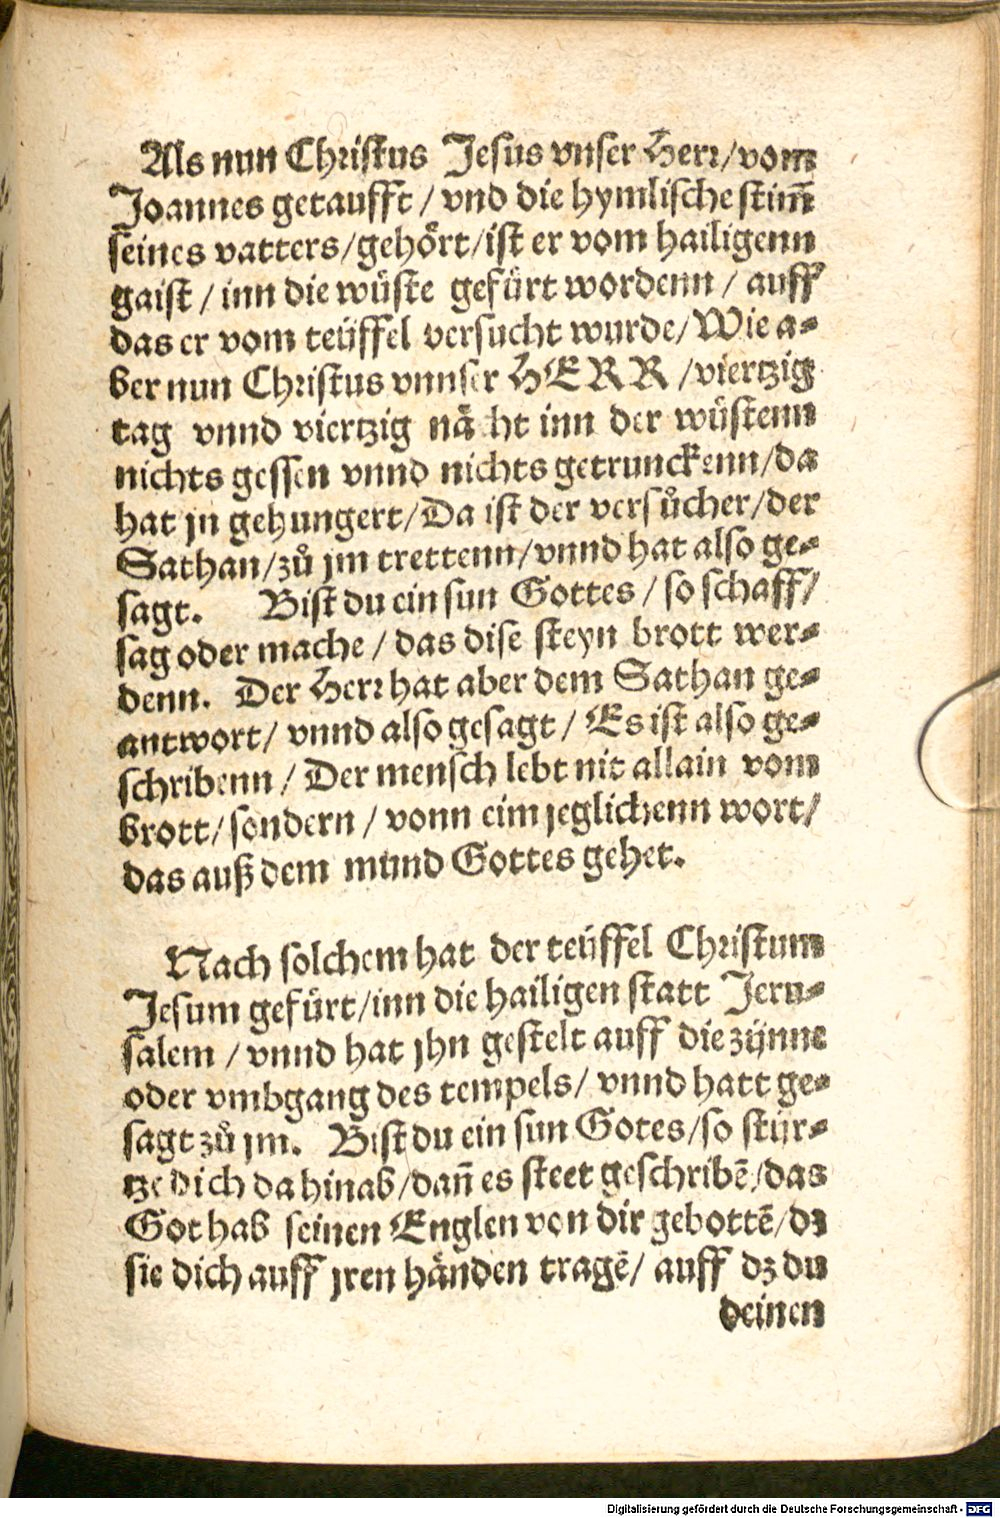 Als nun Christus Jesus vnser Herr/vom
Joannes getaufft / vnd die hymlische stim̃
seines vatters/gehört/ist er vom hailigenn
gaist / inn die wüste gefürt wordenn / auff
das er vom teüffel versucht wurde/Wie a⸗
ber nun Christus vnnser HERR /viertzig
tag vnnd viertzig nächt inn der wüstenn
nichts gessen vnnd nichts getrunckenn/da
hat jn gehungert/Da ist der versůcher/der
Sathan/zů jm trettenn/vnnd hat also ge⸗
sagt. Bist du ein sun Gottes / so schaff/
sag oder mache / das dise steyn brott wer⸗
denn. Der Herr hat aber dem Sathan ge⸗
antwort/ vnnd also gesagt / Es ist also ge⸗
schribenn / Der mensch lebt nit allain vom
brott/sondern / vonn eim jeglichenn wort/
das auß dem mund Gottes gehet.
Nach solchem hat der teüffel Christum
Jesum gefürt/inn die hailigen statt Jeru⸗
salem / vnnd hat jhn gestelt auff die zÿnne
oder vmbgang des tempels/ vnnd hatt ge⸗
sagt zů jm. Bist du ein sun Gotes/so stür⸗
tze dich da hinab/dañ es steet geschribẽ/das
Got hab seinen Englen von dir gebottẽ/dz
sie dich auff jren händen tragẽ/ auff dz du
deinen
Digitalisierung gefördert durch die Deutsche Forschungsgemeinschaft - DFG